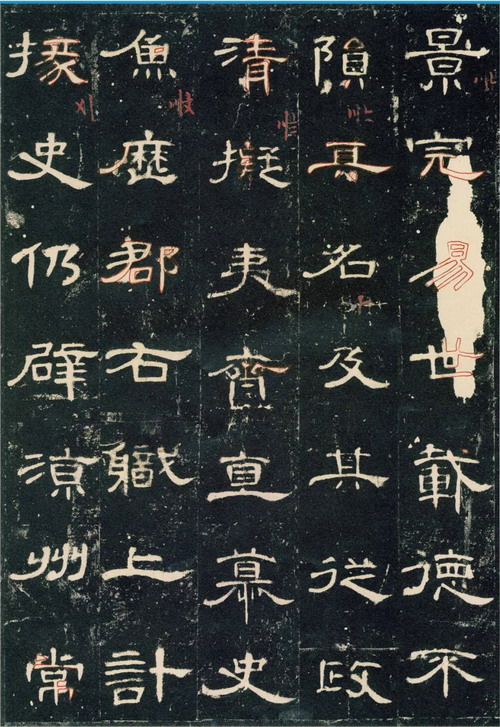 景完易世載德不
隕其名及其從政
清擬夷齊直慕史
魚歷郡右職上計
掾史仍辟涼州常